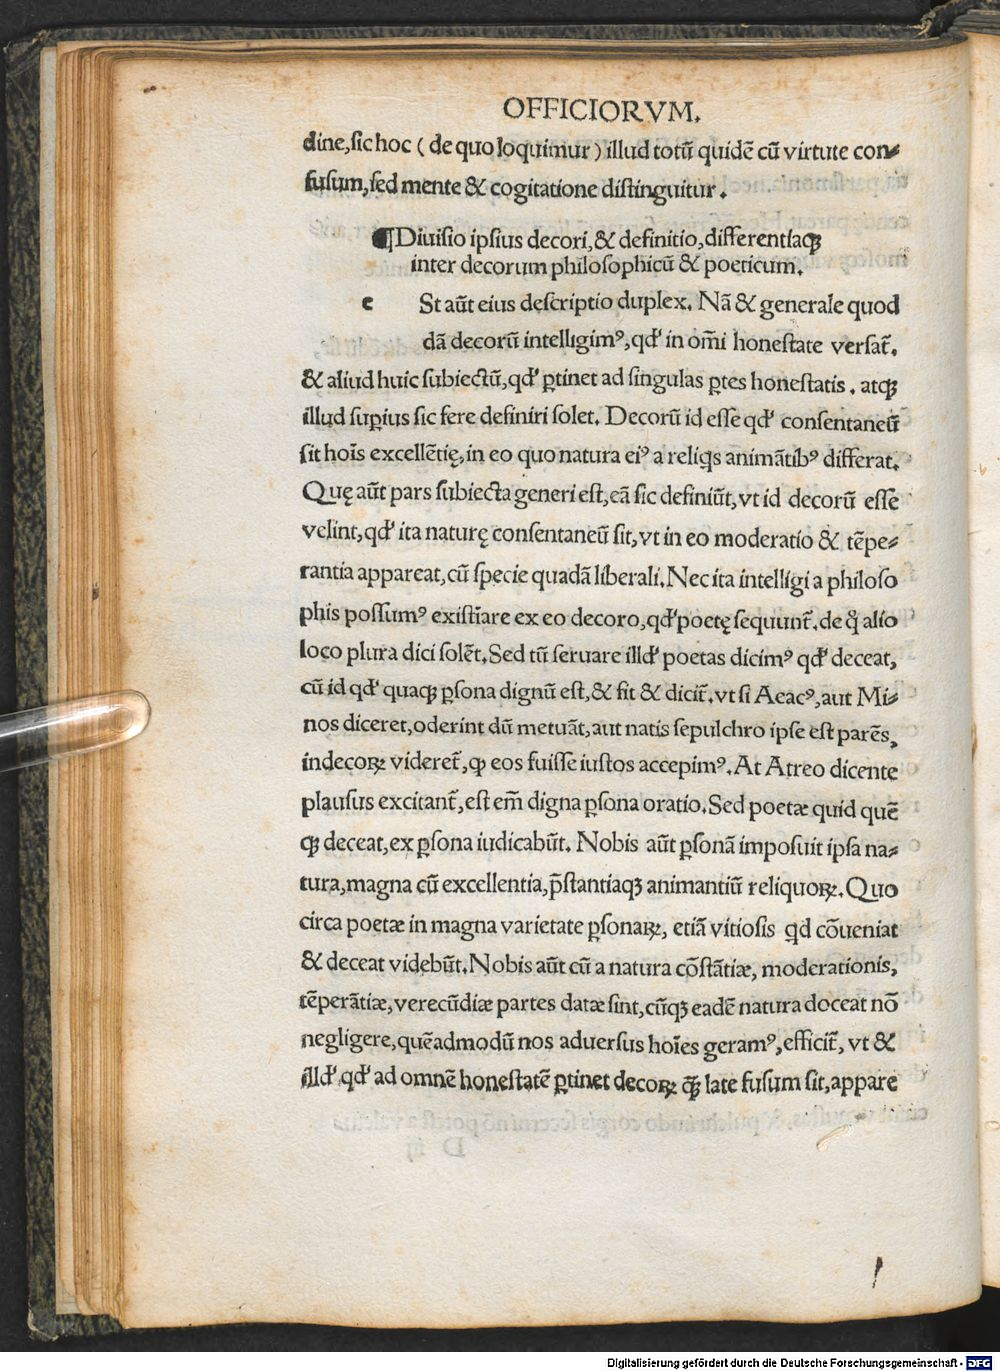 OFFICIORVM.
dine, sic hoc ( de quo loquimur ) illud totũ quidẽ cũ virtute con⸗
fusum, sed mente & cogitatione distinguitur.
¶Diuisio ipsius decori, & definitio, differentiaqꝫ
inter decorum philosophicũ & poeticum.
e St aũt eius descriptio duplex. Nã & generale quod
dã decorũ intelligimꝰ, qd' in om̃i honestate versat̃.
& aliud huic subiectũ, qd' ꝑtinet ad singulas ꝑtes honestatis. atqꝫ
illud suꝑius sic fere definiri solet. Decorũ id esse qd' consentaneũ
sit hoĩs excellẽtię, in eo quo natura eiꝰ a reliq̃s animãtibꝰ differat.
Quę aũt pars subiecta generi est, eã sic definiũt, vt id decorũ esse
velint, qd' ita naturę consentaneũ sit, vt in eo moderatio & tẽpe⸗
rantia appareat, cũ specie quadã liberali. Nec ita intelligi a philoso
phis possumꝰ existĩare ex eo decoro, qd' poetę sequunt̃. de q̃ alio
loco plura dici solẽt. Sed tũ seruare illd' poetas dicimꝰ qd' deceat,
cũ id qd' quaqꝫ ꝑsona dignũ est, & fit & dicit̃. vt si Aeacꝰ, aut Mi⸗
nos diceret, oderint dũ metuãt, aut natis sepulchro ipse est parẽs,
indecoꝝ videret̃, ꝙ eos fuisse iustos accepimꝰ. At Atreo dicente
plausus excitant̃, est em̃ digna ꝑsona oratio. Sed poetæ quid quẽ
qꝫ deceat, ex ꝑsona iudicabũt. Nobis aũt ꝑsonã imposuit ipsa na⸗
tura, magna cũ excellentia, p̃stantiaqꝫ animantiũ reliquoꝝ. Quo
circa poetæ in magna varietate ꝑsonaꝝ, etiã vitiosis qd cõueniat
& deceat videbũt. Nobis aũt cũ a natura cõstãtiæ, moderationis,
tẽperãtiæ, verecũdiæ partes datæ sint, cũqꝫ eadẽ natura doceat nõ
negligere, quẽadmodũ nos aduersus hoĩes geramꝰ, efficit̃, vt &
illd' qd' ad omnẽ honestatẽ ꝑtinet decoꝝ q̃ꝫ late fusum sit, appare
Digitalisierung gefördert durch die Deutsche Forschungsgemeinschaft - DFG